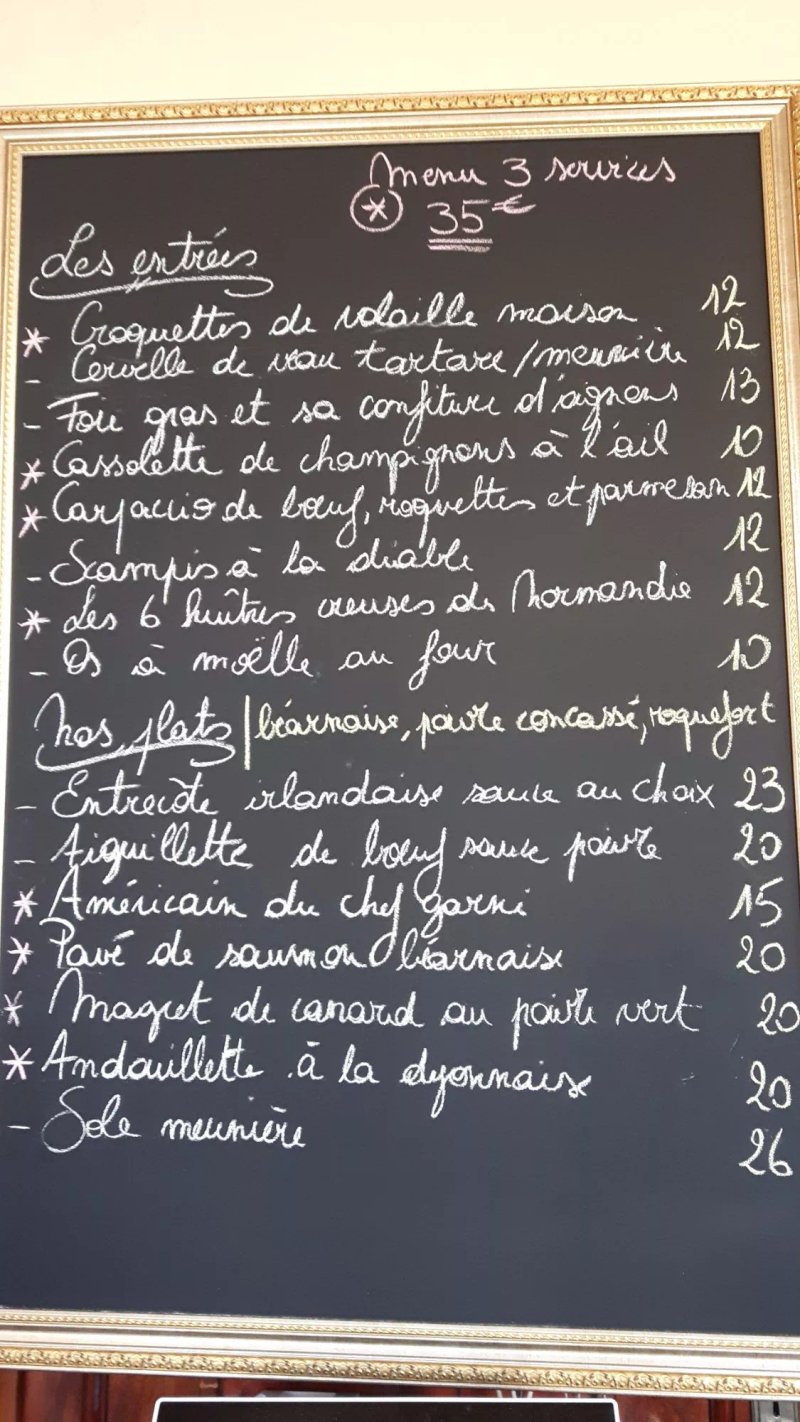 Menu 3 services
* 35€
Les entrées
* Croquettes de volaille maison 12
- Cervelle de veau tartare/meunière 12
- Foie gras et sa confiture d'oignons 13
* Cassolette de champignons à l'ail 10
* Carpaccio de bœuf, roquettes et parmesan 12
- Scampis à la diable 12
* Les 6 huîtres creuses de Normandie 12
- Os à moëlle au four 10
Nos plats | béarnaise, poivre concassé, roquefort
- Entrecôte irlandaise sauce au choix 23
- Aiguillette de bœuf sauce poivre 20
* Américain du chef garni 15
* Pavé de saumon béarnaise 20
* Magret de canard au poivre vert 20
* Andouillette à la lyonnaise 20
- Sole meunière 26